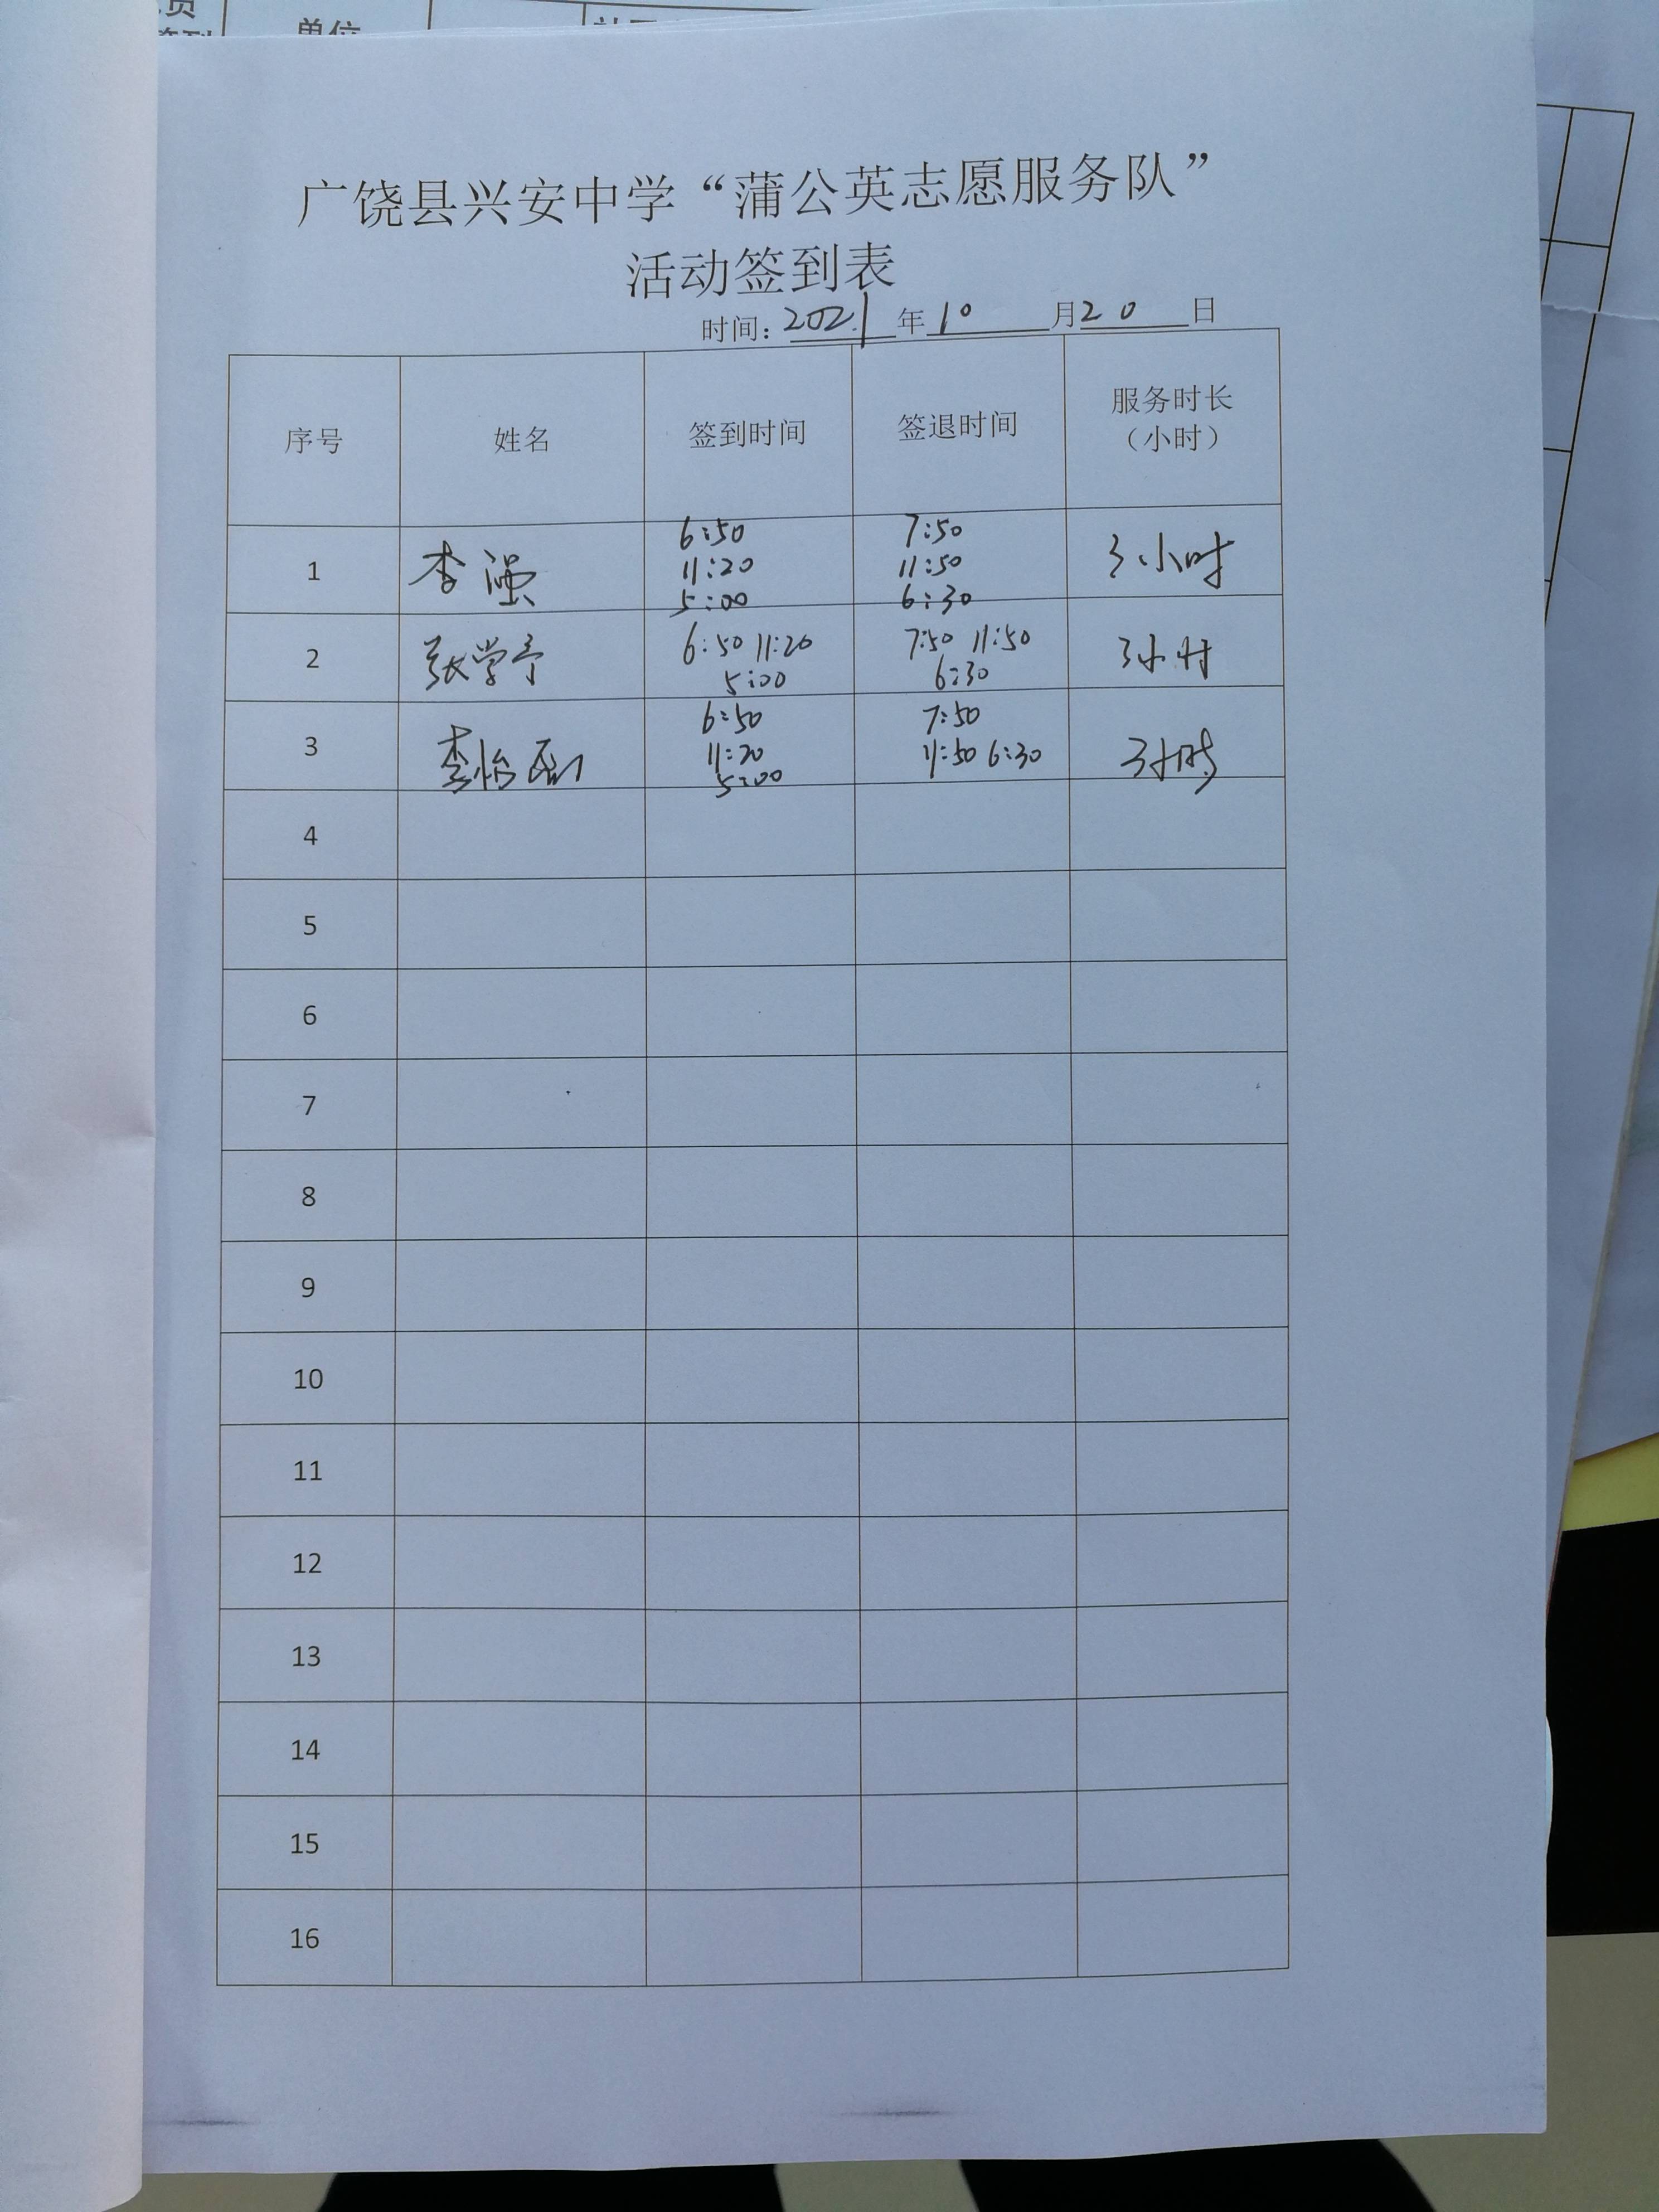 单位
广饶县兴安中学“蒲公英志愿服务队”
活动签到表
时间：2021年10月20日
序号 姓名 签到时间 签退时间 服务时长（小时）
1 李强 6:50 11:20 5:00 7:50 11:50 6:30 3小时
2 张学亭 6:50 11:20 5:00 7:50 11:50 6:30 3小时
3 李怡 6:50 11:20 5:00 7:50 11:50 6:30 3小时
4
5
6
7
8
9
10
11
12
13
14
15
16